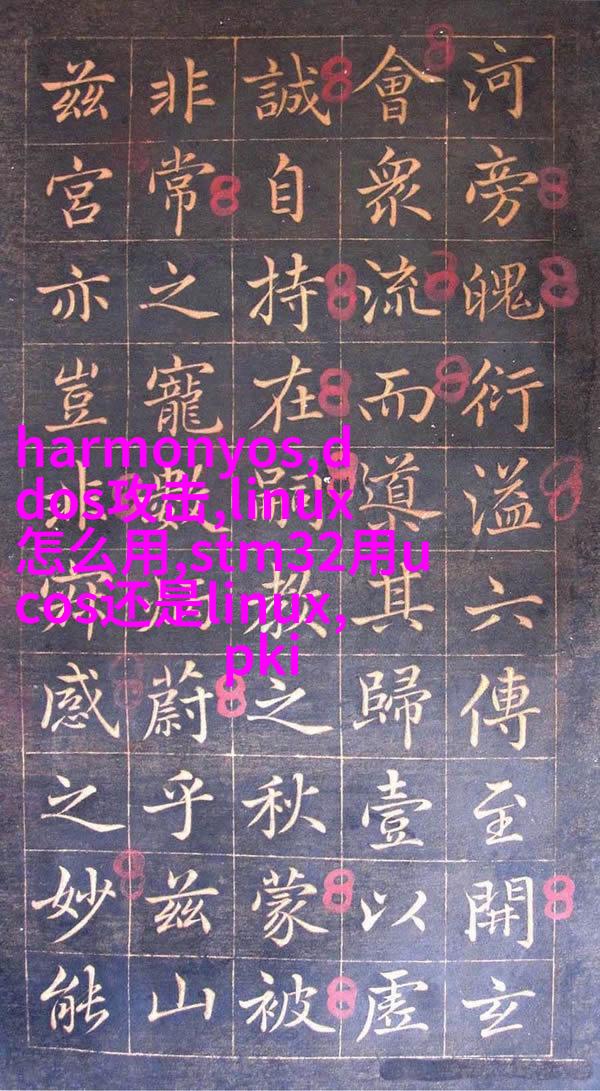 河旁魄衍溢六傳至開玄
會衆流而道其歸壹以虛
誠自持在嗣教之秋蒙被
非常之寵數蔚乎兹山
兹宮亦豈非感之妙能
harmonyos,d
dos攻击,linux
怎么用,stm32用u
cos还是linux,
pki